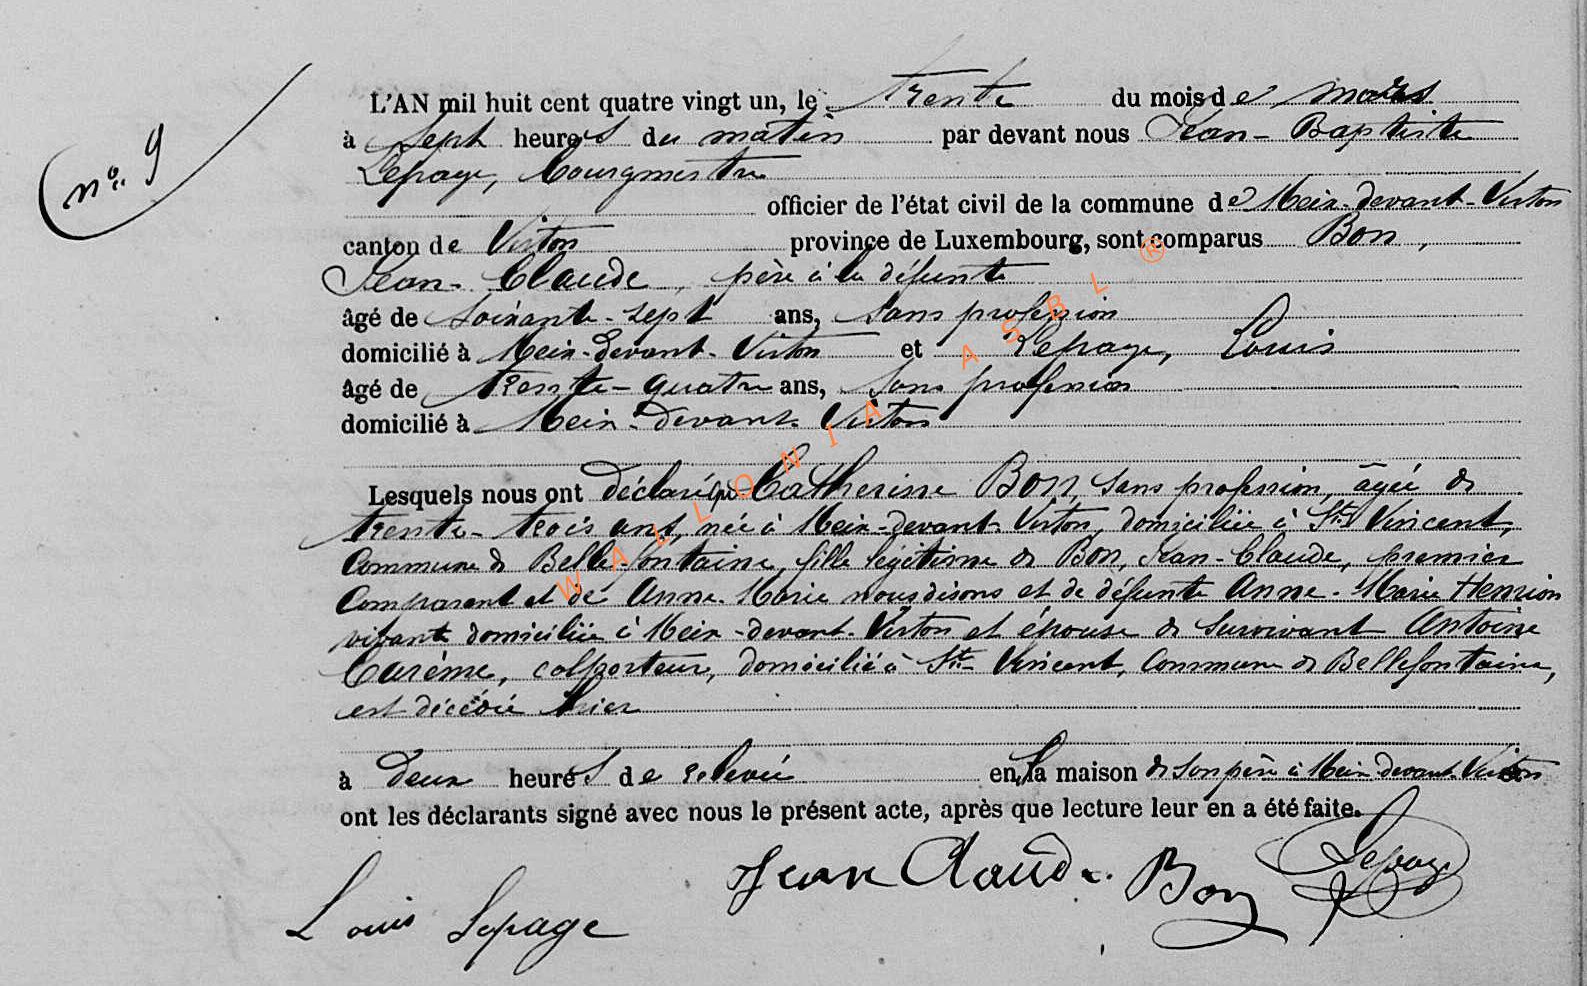 L'AN mil huit cent quatre vingt un, le trente du mois de mars
n° 9
à sept heures du matin par devant nous Jean-Baptiste
Lepage, bourgmestre
officier de l'état civil de la commune de Meix-devant-Virton
canton de Virton province de Luxembourg, sont comparus Bon,
Jean-Claude, père à la défunte
âgé de soixante-sept ans, sans profession
domicilié à Meix-devant-Virton et Lepage, Louis
âgé de trente-quatre ans, sans profession
domicilié à Meix-devant-Virton
Lesquels nous ont déclaré que Catherine Bon, sans profession, âgée de
trente-trois ans, née à Meix-devant-Virton, domiciliée à St-Vincent,
Commune de Bellefontaine, fille légitime de Bon, Jean-Claude, premier
Comparant et de Anne-Marie nous disons et de défunte Anne-Marie Henrion
vivante domiciliée à Meix-devant-Virton et épouse de survivant Antoine
Carême, colporteur, domicilié à St-Vincent, Commune de Bellefontaine,
est décédée hier
à deux heures de relevée en la maison de son père à Meix devant-Virton
ont les déclarants signé avec nous le présent acte, après que lecture leur en a été faite.
Jean Claude Bon Lepage
Louis Lepage
WALLONIA ASBL ®